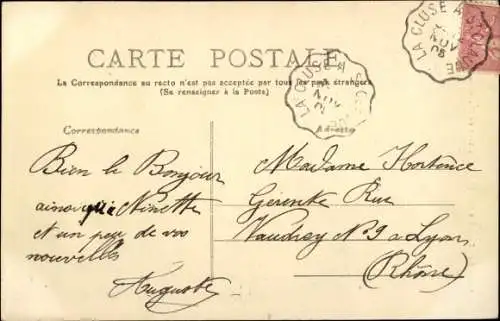 CARTE POSTALE
La Correspondance au recto n'est pas acceptée par tous les pays étrangers
(Se renseigner à la Poste)
LA CLUSE A
NOV
05
LA CLUSE A
NOV
Correspondance
Adresse
Bien le Bonjour
ainsi qu'a Ninette
et un peu de vos
nouvelles
Auguste
Madame Hortence
Gérente Rue
Vaudrey N° 9 a Lyon
(Rhône)